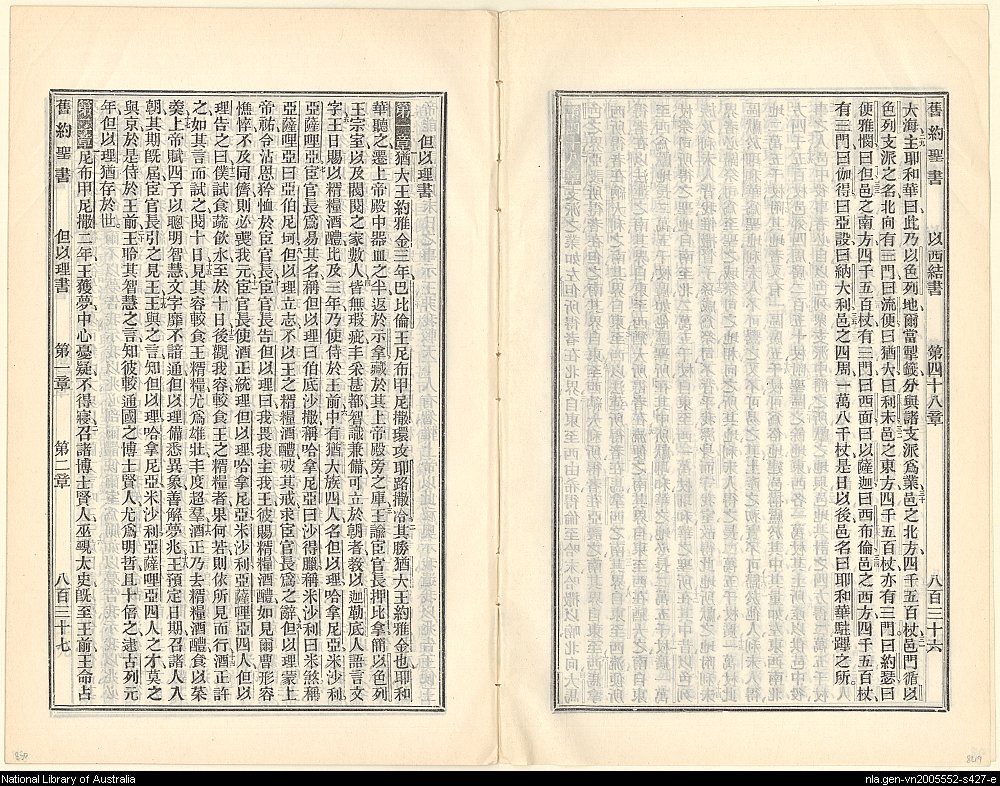 舊約聖書 以西結書 第四十八章 八百三十六
大海主耶和華曰此乃以色列地爾當掣籤分與諸支派爲業邑之北方四千五百杖邑門循以
色列支派之名北向有三門曰流便曰猶大曰利未邑之東方四千五百杖亦有三門曰約瑟曰
便雅憫曰但邑之南方四千五百杖有三門曰西面曰以薩迦曰西布倫邑之西方四千五百杖
有三門曰伽得曰亞設曰納大利邑之四周一萬八千杖是日以後邑名曰耶和華駐蹕之所
但以理書
第一章猶大王約雅金三年巴比倫王尼布甲尼撒環攻耶路撒冷其勝猶大王約雅金也耶和
華聽之遷上帝殿中器皿之半返於示拿藏於其上帝殿旁之庫王諭宦官長押比拿簡以色列
王宗室以及閥閱之家數人皆無瑕疵丰釆甚都智識兼備可立於朝者教以迦勒底人語言文
字王日賜以糈糧酒醴比及三年乃使侍於王前中有猶大族四人名但以理哈拿尼亞米沙利
亞薩哩亞宦官長爲易其名稱但以理曰伯底沙撒稱哈拿尼亞曰沙得臘稱米沙利曰米煞稱
亞薩哩亞曰亞伯尼珂但以理立志不以王之糈糧酒醴破其戒求宦官長爲之辭但以理蒙上
帝祐令沾恩矜恤於宦官長宦官長告但以理曰我畏我主我王彼賜糈糧酒醴如見爾曹形容
憔悴不及同儕則必喪我元宦官長使酒正統理但以理哈拿尼亞米沙利亞薩哩亞四人但以
理告之曰僕試食蔬飲水至於十日後觀我容較食王之糈糧者果何若則依所見而行酒正許
之如其言而試之閱十日見其容較食王糈糧尤爲雄壯丰度超羣酒正乃去糈糧酒醴食以菜
羹上帝賦四子以聰明智慧文字靡不諳通但以理備悉異象善解夢兆王預定日期召諸人入
朝其期旣屆宦官長引之見王王與之言知但以理哈拿尼亞米沙利亞薩哩亞四人之才莫之
與京於是侍於王前王聆其智慧之言知彼較通國之博士賢人尤爲明哲且十倍之逮古列元
年但以理猶存於世
第二章尼布甲尼撒二年王獲夢中心憂疑不得寢召諸博士賢人巫覡太史旣至王前王命占
舊約聖書 但以理書 第一章 第二章 八百三十七
850
849
National Library of Australia
nla.gen-vn2005552-s427-e